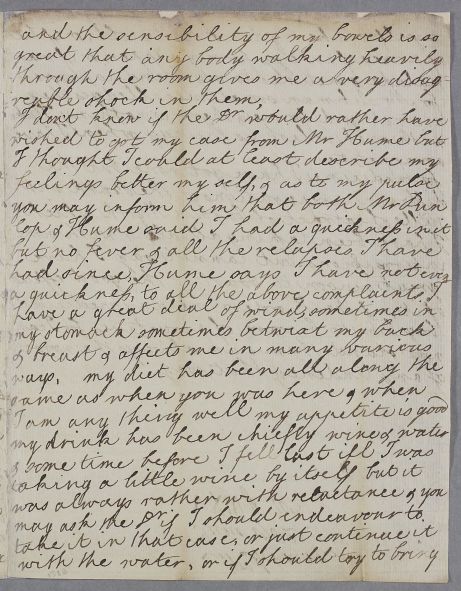 and the sensibility of my bowels is so
great that any body walking heavily
through the room gives me a very disag-
reable shock in them,
I don't know if the Dr would rather have
wished to got my case from Mr Hume but
I thought I could at least describe my
feelings better my self, & as to my pulse
you may inform him that both Mr Dun
lop & Hume said I had a quickness in it
but no fever & all the relapses I have
had since, Hume says I have not even
a quickness, to all the above complaints I
have a great deal of wind, sometimes in
my stomach sometimes betwixt my back
& breast & affects me in many various
ways, my diet has been all along the
same as when you was here & when
I am any thing well my appetite is good
my drink has been chiefly wine & water
& some time before I fell last ill I was
taking a little wine by itself but it
was always rather with reluctance & you
may ask the Dr if I should endeavour to
take it in that case, or just continue it
with the water, or if I should try to bring